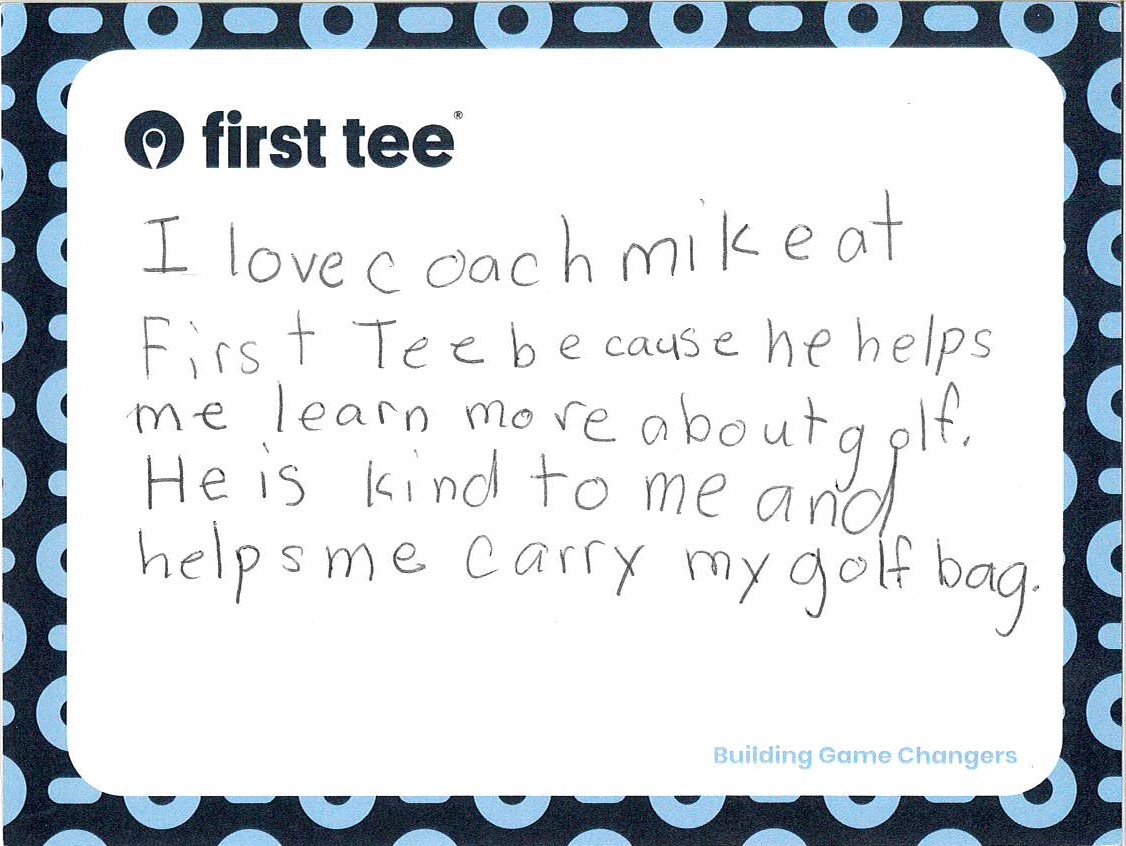 first tee®
I love coach mike at
First Tee because he helps
me learn more about golf.
He is kind to me and
helps me carry my golf bag.
Building Game Changers